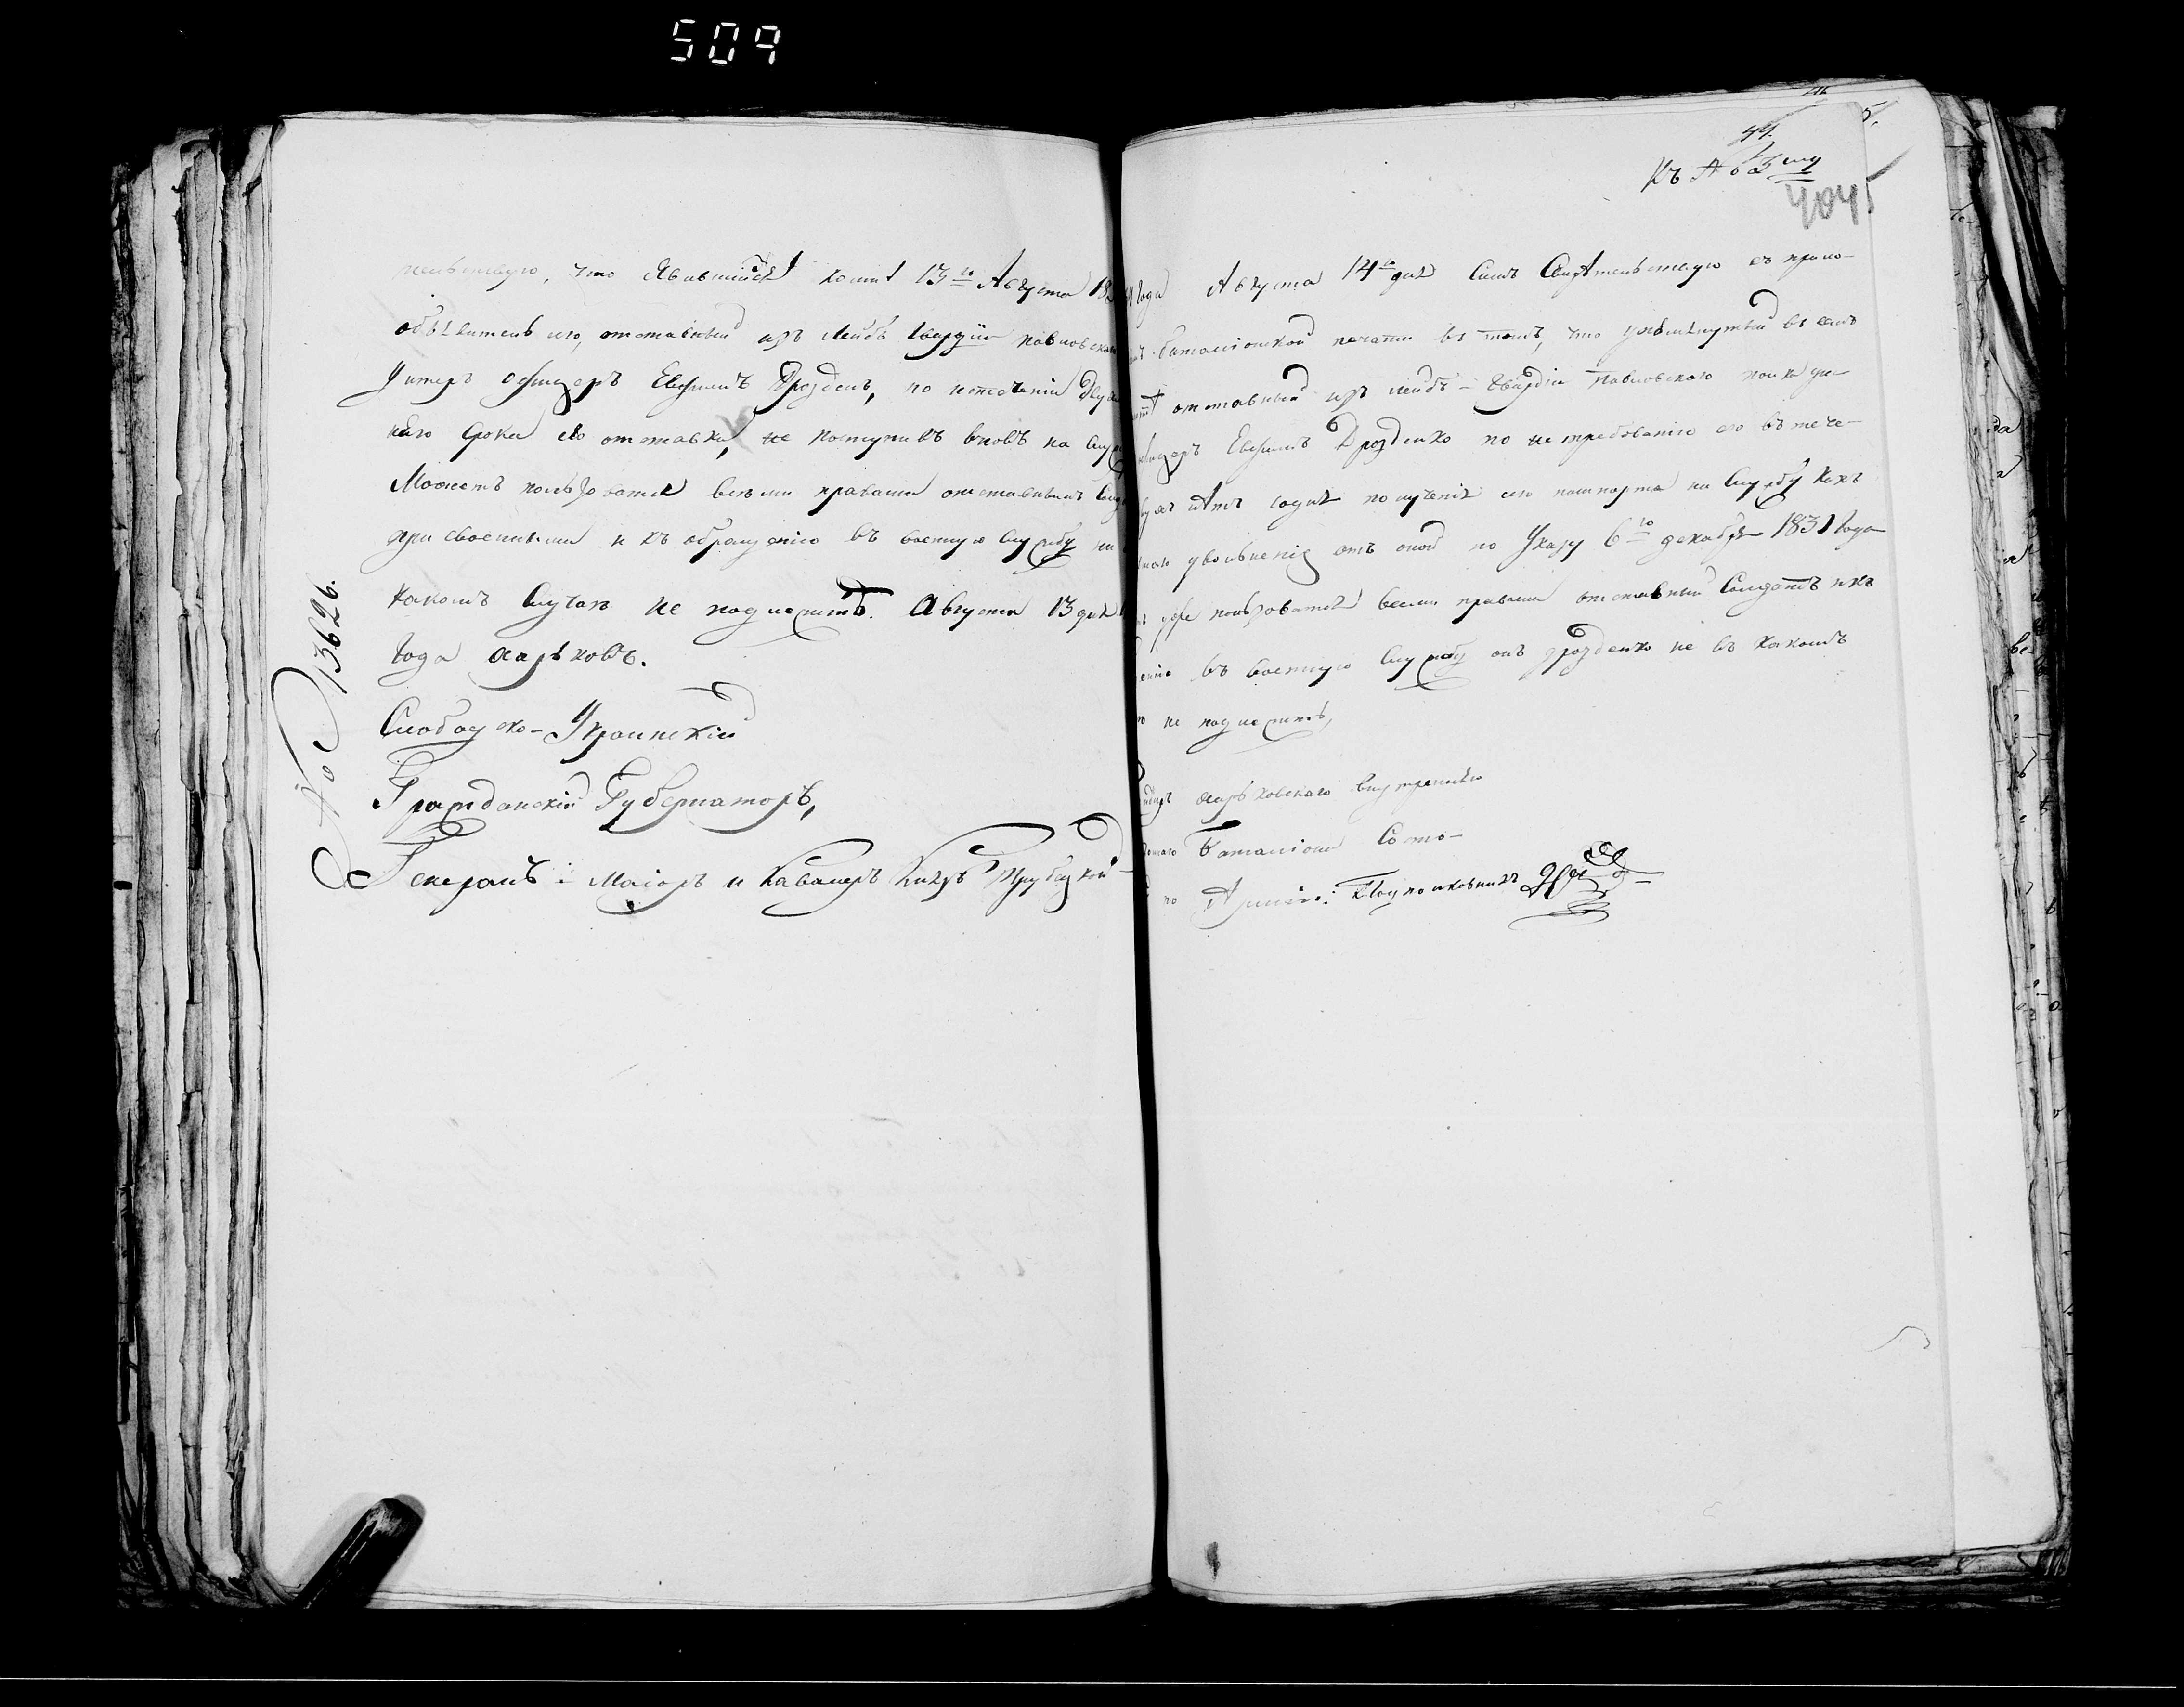 509
44.
Къ № 3му
404
тельствую, что Явившийся комнѣ 13го Августа 18
объявитель сего, отставный изъ Лейбъ Гвардіи павловска
Унтеръ офицеръ Евфимъ Дрозденъ, по истеченіи двух
няго срока его отставки, не поступивъ вновь на служ
Можетъ пользоватся всѣми правами отставнымъ Солд
присвоенными и къ обращенію въ военную службу ни
какомъ Случаѣ не подлежитъ. Августа 13 дня
года Харьковъ.
№ 13626.
Слободско-Украинскій
Гражданскій Губернаторъ,
Генералъ-Маіоръ и Кавалеръ Князь Трубецкой
года Августа 14го дня Симъ Свидѣтельствую съ прило-
баталіонной печати въ томъ, что упомянутый въ семъ
отставный изъ лейбъ-Гвардіи Павловскаго полка ун-
Евфимъ Дрозденко по не требованію его въ тече-
лѣтъ со дня полученія сего пашпорта на Службу какъ
увольненія отъ оной по Указу 6го декабря 1831 года
уже пользоватся всеми правами отставный Солдатъ
въ военную Службу онъ дрозденко не въ какомъ
не подлежитъ,
Харьковскаго внутренняго
Баталіона Состо-
по Арміи: Подполковникъ